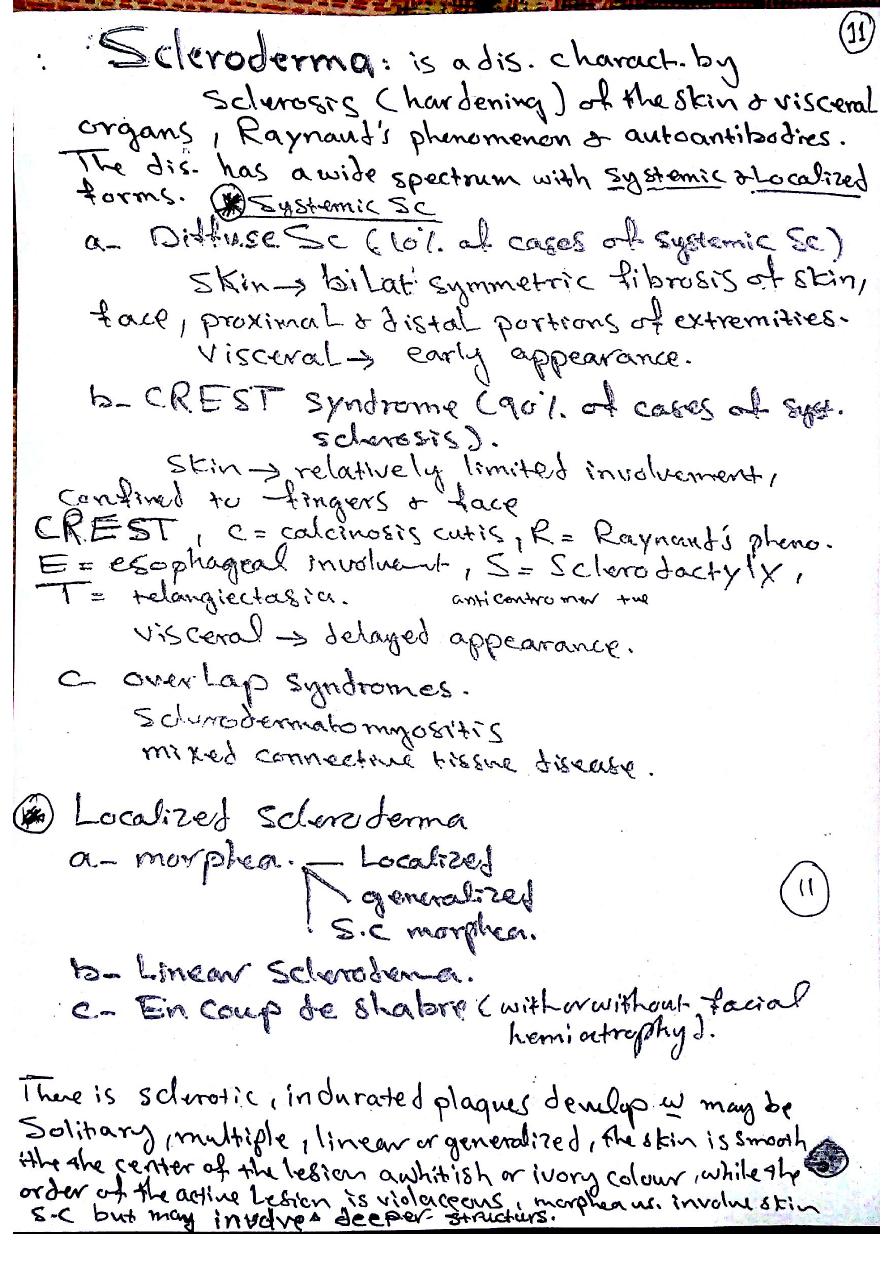 11
Scleroderma: is a dis. charact. by
Sclerosis (hardening) of the skin & visceral
organs, Raynaud's phenomenon & autoantibodies.
The dis. has a wide spectrum with systemic & Localized
forms. Systemic SC
a- Diffuse Sc (10% of cases of systemic Sc)
Skin → bilat symmetric fibrosis of skin,
face, proximal & distal portions of extremities.
Visceral → early appearance.
b- CREST syndrome (90% of cases of syst.
sclerosis).
Skin → relatively limited involvement,
confined to fingers & face
CREST, C = calcinosis cutis, R = Raynaud's pheno.
E = esophageal involvent, S = Sclerodactylx,
T = telangiectasia. anticentromer +ve
Visceral → delayed appearance.
C- overlap syndromes.
Sclerodermatomyositis
mixed connective tissue disease.
Localized scleroderma
a- morphea. Localized
generalized
11
S.C morphea.
b- Linear Scleroderma.
c- En coup de shabre (with or without facial
hemiatrophy).
There is sclerotic, indurated plaques develop w may be
Solitary, multiple, linear or generalized, the skin is smooth
the center of the lesion a whitish or ivory colour, while the
order of the active Lesion is violaceous, morphea us. involve skin
S.C but may involves deeper structurs.